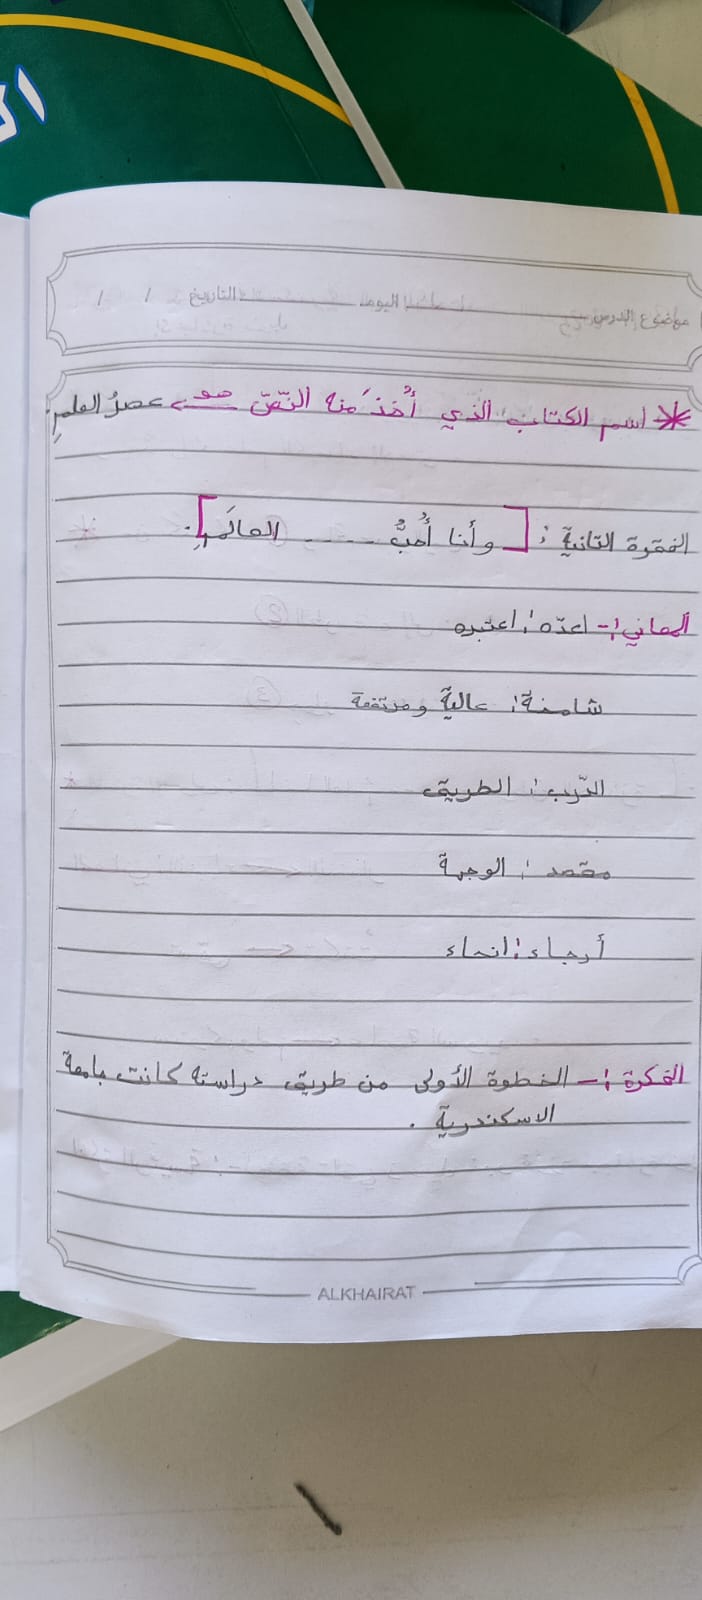 ال
موضوع الدرس اليوم التاريخ / /
* اسم الكتاب الذي أُخذَ منه النّصّ هو عصرُ العلمِ.
الفقرة الثانية : [ وأنا أُحبُّ ..... العالَمِ ].
المعاني :- اعدّه : اعتبره
شامخة : عالية ومرتفعة
الدّرب : الطريق
مقصد : الوجهة
أرجاء : انحاء
الفكرة :- الخطوة الأولى من طريق دراسته كانت جامعة
الاسكندرية .
ALKHAIRAT